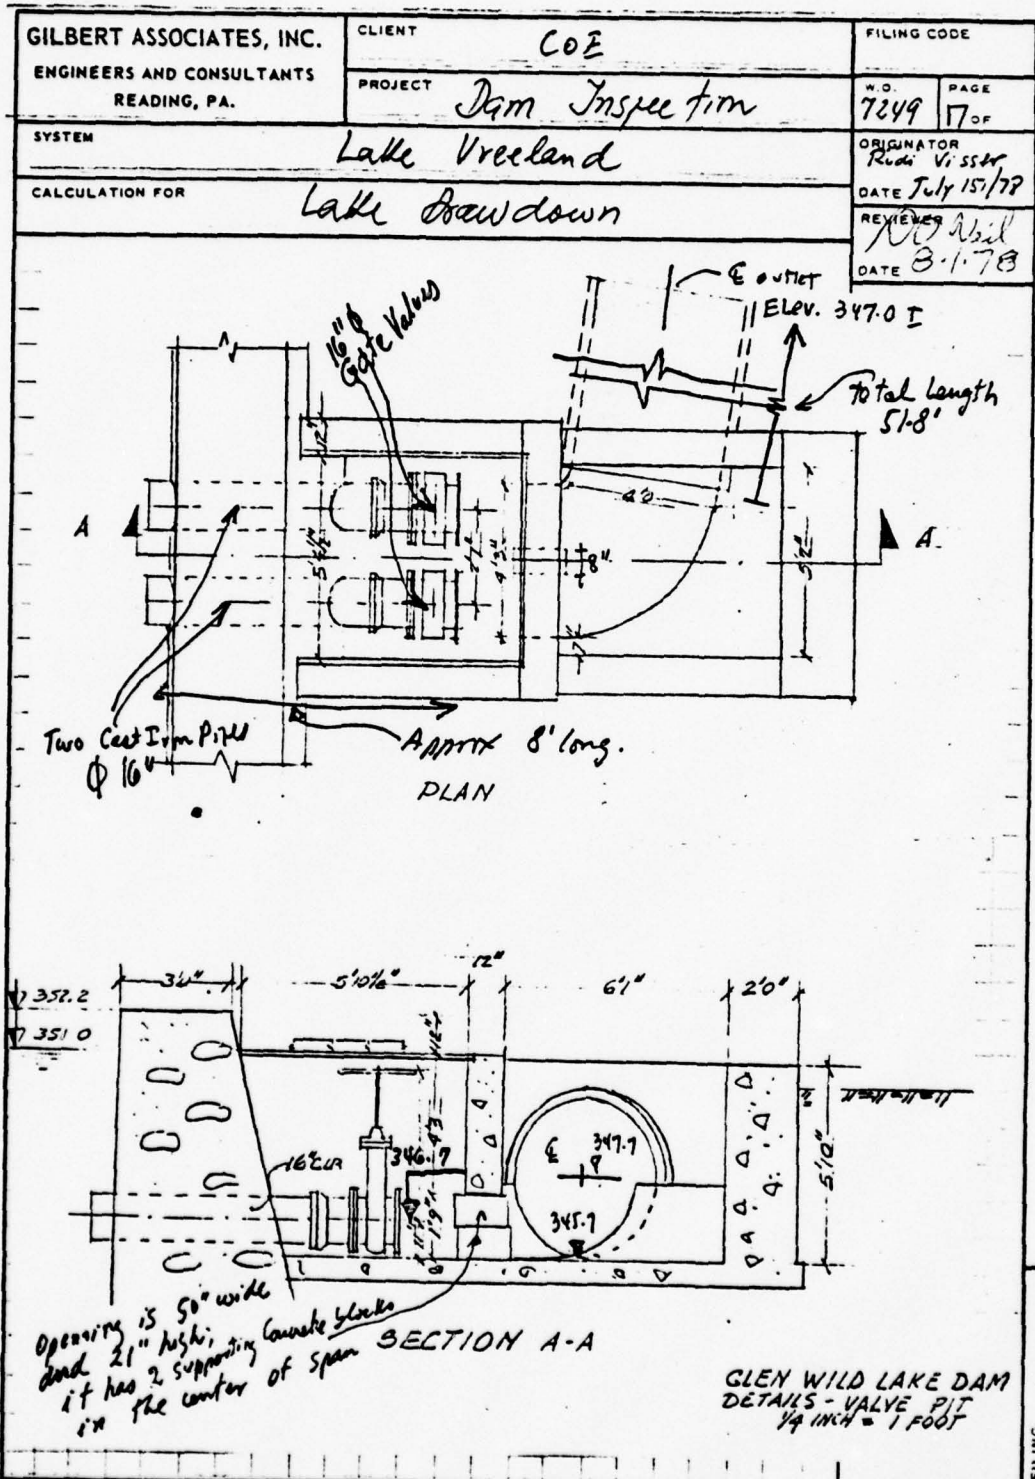 GILBERT ASSOCIATES, INC.
ENGINEERS AND CONSULTANTS
READING, PA.
CLIENT
COE
FILING CODE
PROJECT
Dam Inspection
W.O.
7249
PAGE
17 OF
SYSTEM
Lake Vreeland
ORIGINATOR
Rudi Visser
DATE July 15/78
CALCULATION FOR
Lake Drawdown
REVIEWER
DATE 8-1-78
16" φ
Gate Valves
℄ outlet
Elev. 347.0 I
Total Length
51-8"
12"
A
A.
4'0
5'2"
4'3"
8"
7"
Two Cast Iron Pipes
φ 16"
Approx 8' long.
PLAN
12"
5'10⅛"
6'1"
2'0"
352.2
351.0
16" CIP
346.7
4'3
1'9"
℄ 347.7
345.7
5'10"
Opening is 50" wide
and 21" high;
it has 2 supporting Concrete blocks
in the center of span
SECTION A-A
GLEN WILD LAKE DAM
DETAILS - VALVE PIT
1/4 INCH = 1 FOOT